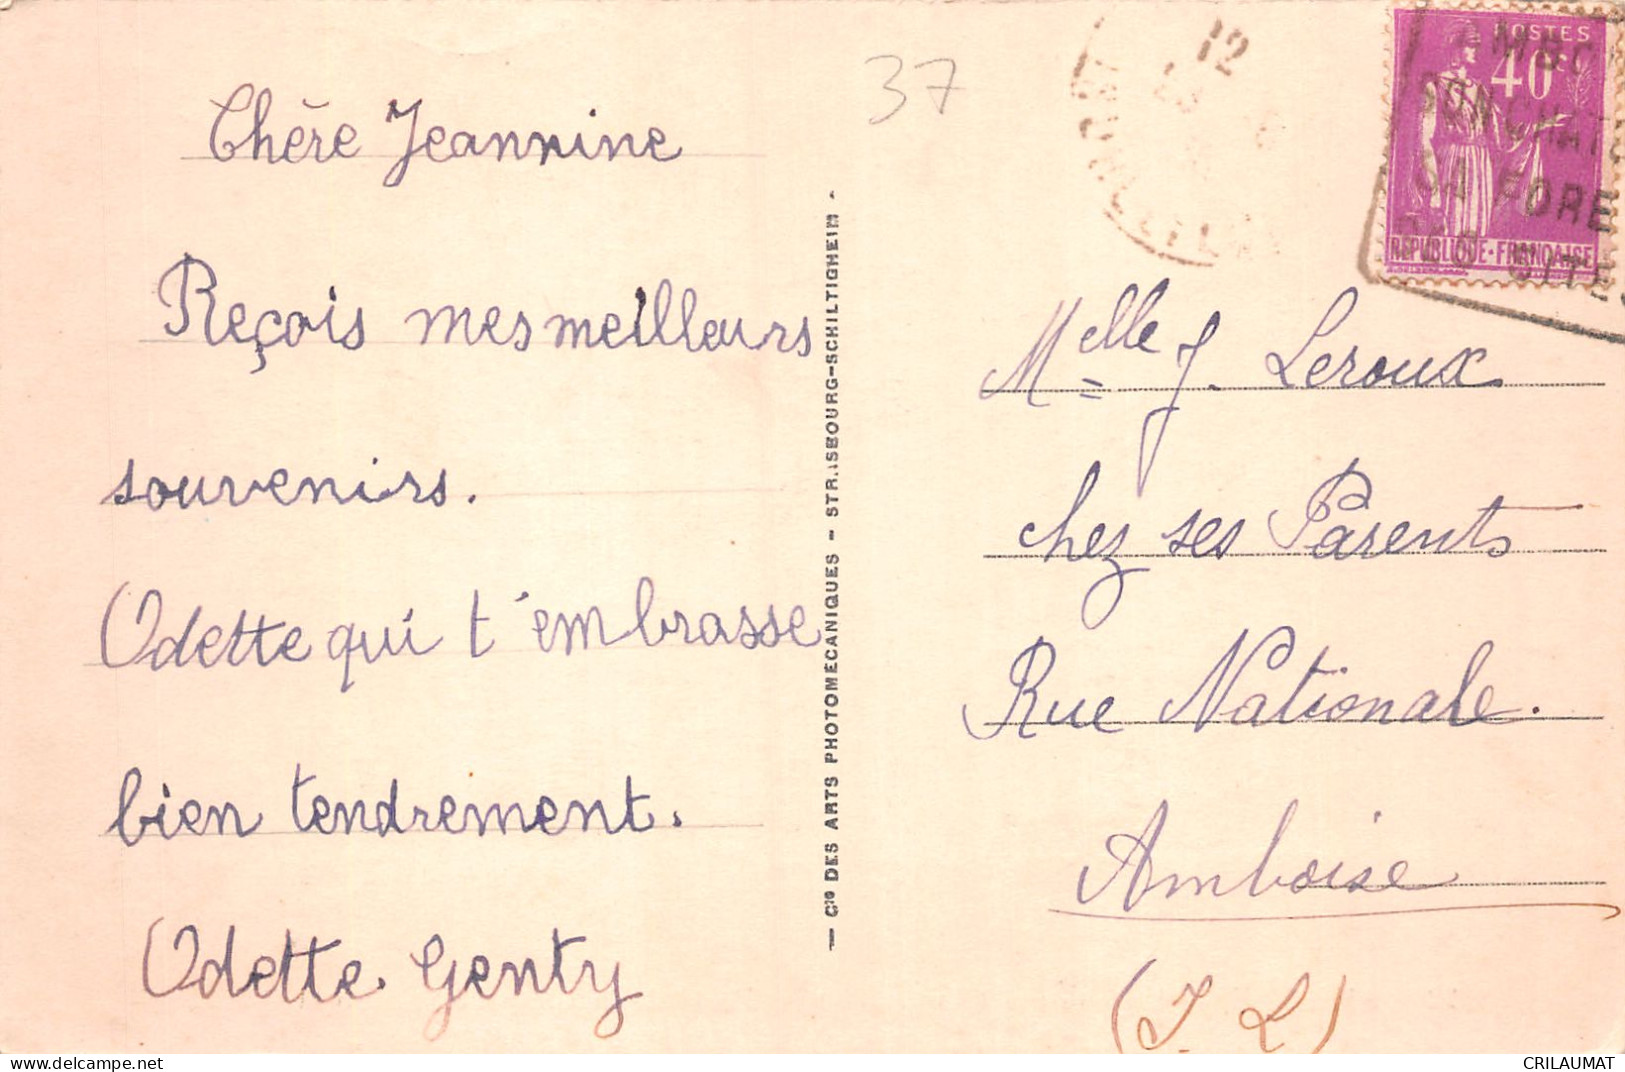 Chère Jeannine
Reçois mes meilleurs
souvenirs.
Odette qui t'embrasse
bien tendrement.
Odette Genty
— Cie DES ARTS PHOTOMÉCANIQUES - STRASBOURG-SCHILTIGHEIM -
37
12
POSTES
40c
RÉPUBLIQUE-FRANÇAISE
SON CHAT
SA FORE
CITES
Melle J. Leroux
chez ses Parents
Rue Nationale.
Amboise
(I. L)
CRILAUMAT